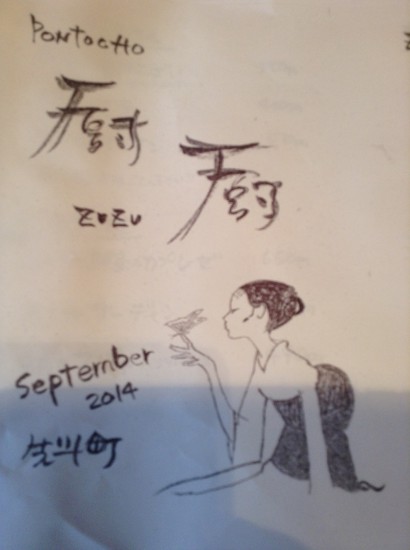 PONTOCHO
厨
厨
ZUZU
September
2014
先斗町